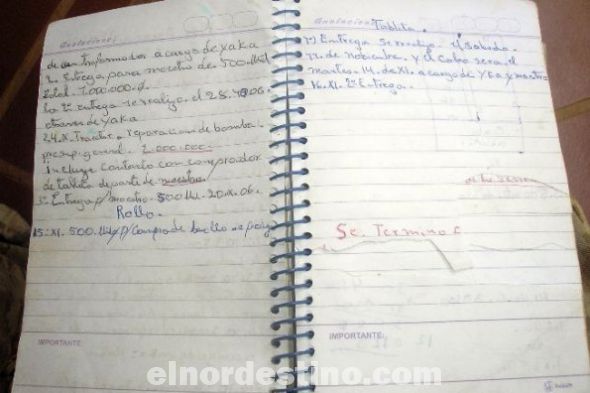 Anotaciones:
de un transformador a cargo de yaka
2. Entrega para maestro de 500.mil
total 1.000.000.g.
La 2º entrega se realizo el 28.
atraves de yaka
24.X. Tractor. reparacion de bomba.
presup. general. 2.000.000.
Incluye Contacto con comprador
de tablita de parte de maestro.
3º Entrega p/ maestro. 500 mil. 20.X.06.
Rollo.
15. XI. 500.mil p/ Compra de
IMPORTANTE:
Anotaciones:
Tablita.
1º) Entrega se realizo el sabado.
11. de Nobiembre. y el Cobro sera el
martes 14. de XI. a cargo de y maestro
16. XI. 2º Entrega.
Se. Termino
IMPORTANTE:
elnordestino.com